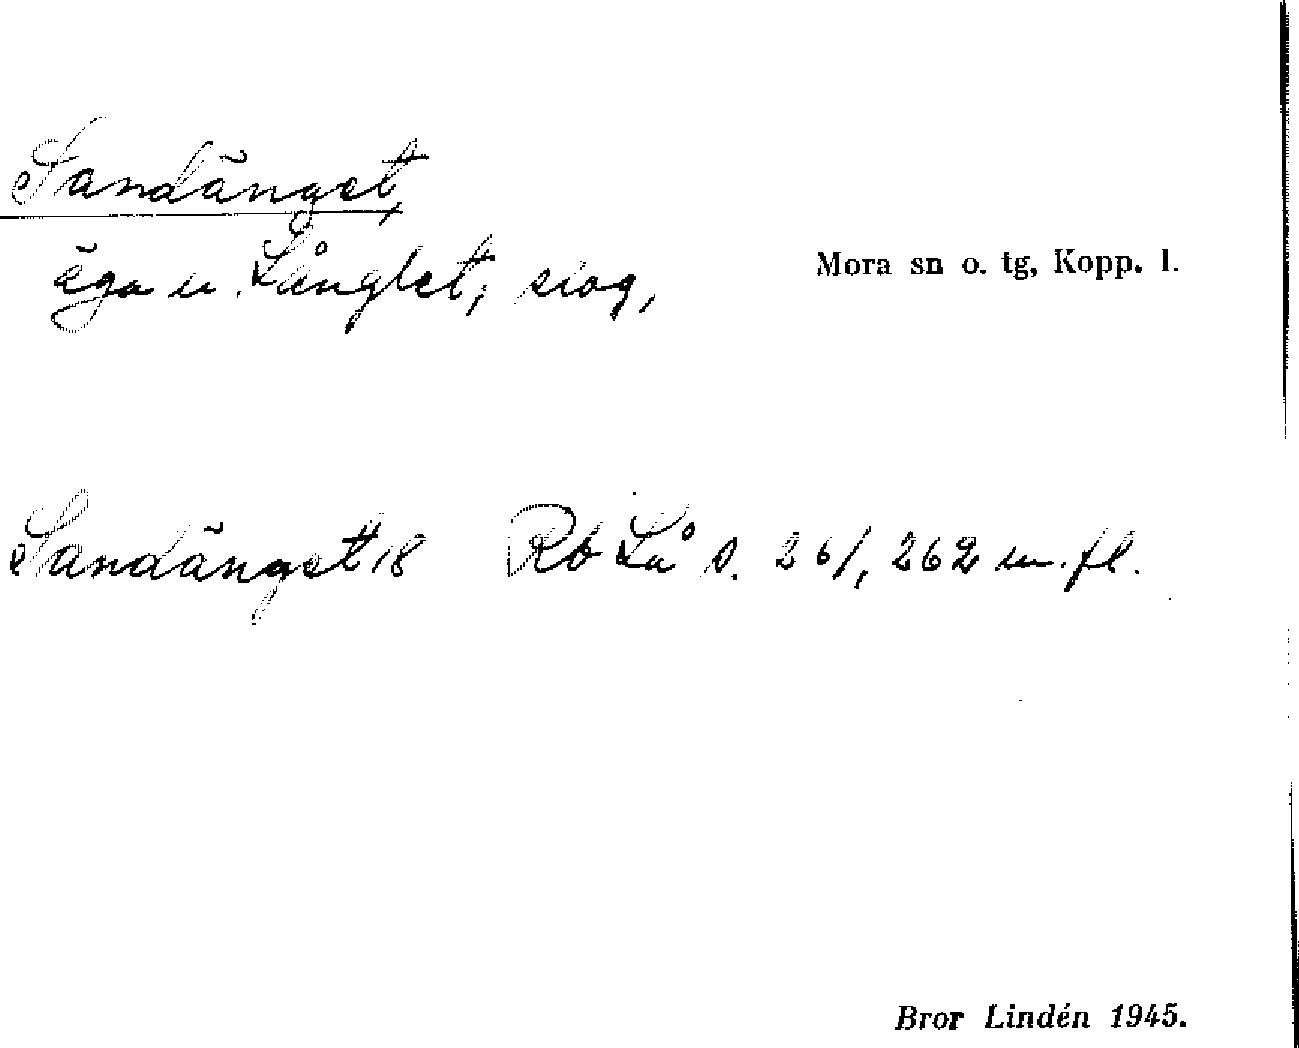 Sandänget,
äga u. Långlet, skog,
Mora sn o. tg, Kopp. l.
Sandänget 18 Rb Lå s. 261, 262 m. fl.
Bror Lindén 1945.